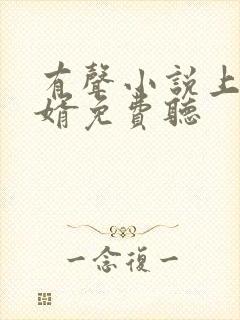 有聲小說上
婿免費聽
一念復一